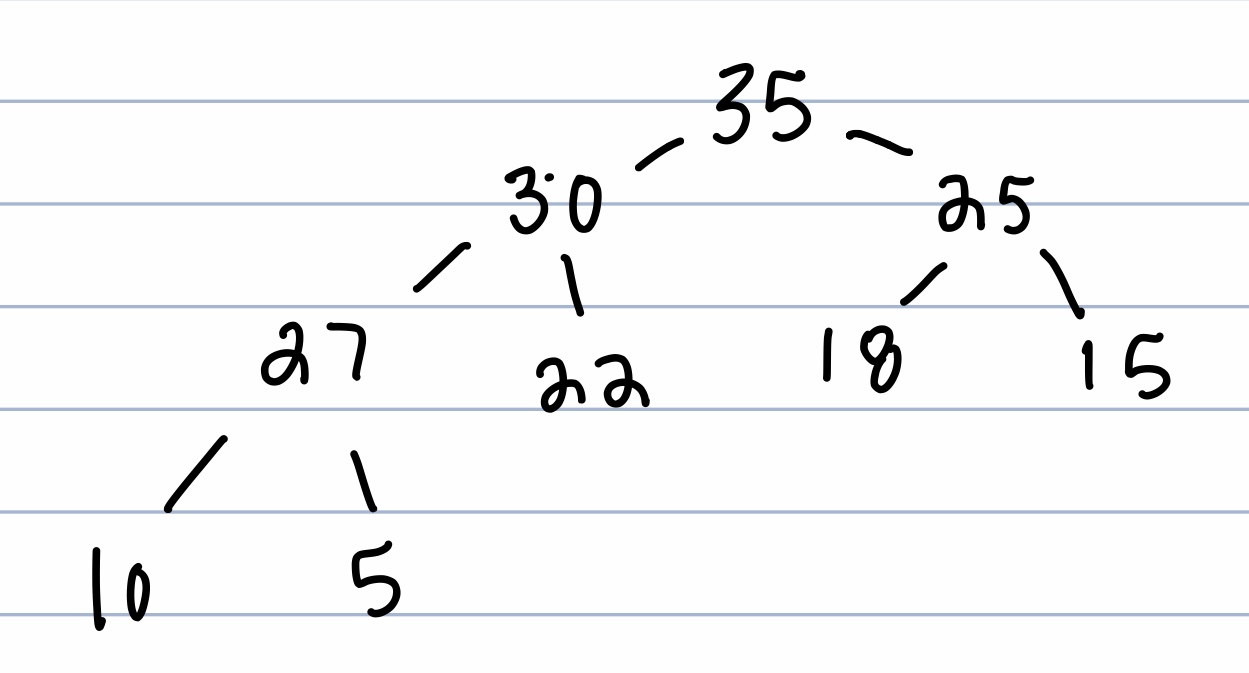 35
30 25
27 22 18 15
10 5